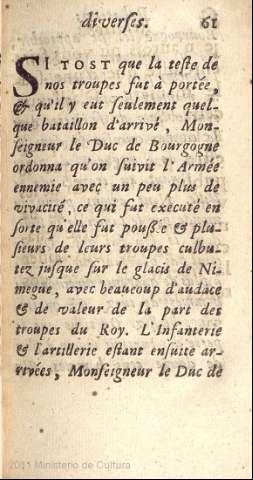 diverses. 61
SI TOST que la teste de
nos troupes fut à portée,
& qu'il y eut seulement quel-
que bataillon d'arrivé, Mon-
seigneur le Duc de Bourgogne
ordonna qu'on suivit l'Armée
ennemie avec un peu plus de
vivacité, ce qui fut executé en
sorte qu'elle fut poussée & plu-
sieurs de leurs troupes culbu-
tez jusque sur le glacis de Ni-
megue, avec beaucoup d'audace
& de valeur de la part des
troupes du Roy. L'Infanterie
& l'artillerie estant ensuite ar-
rivées, Monseigneur le Duc de
2011 Ministerio de Cultura